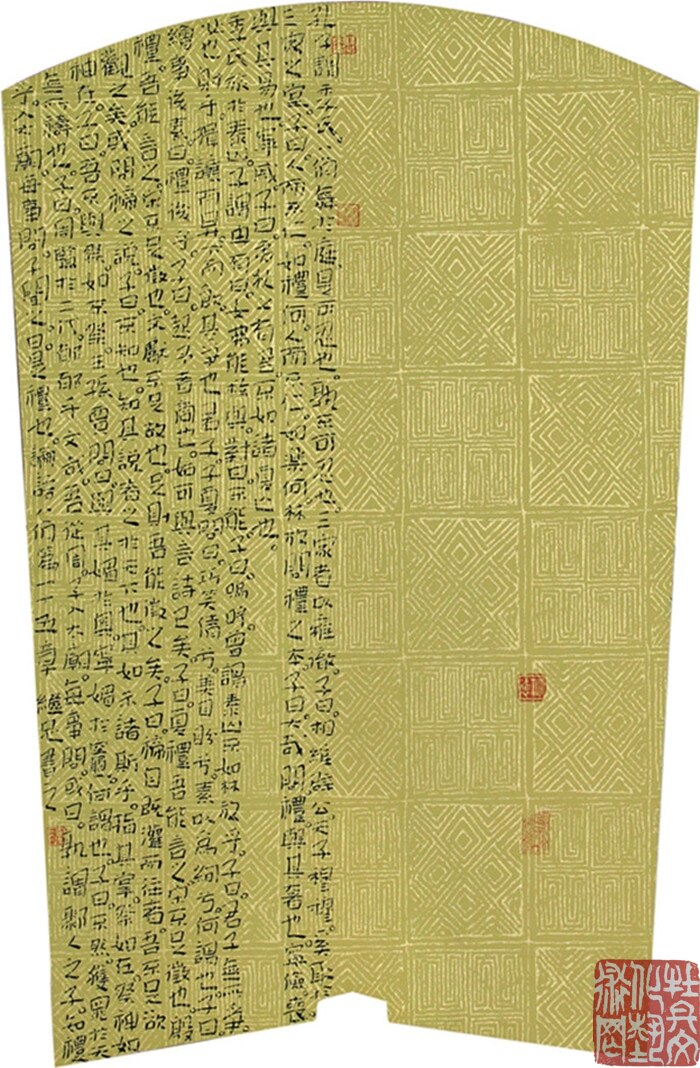 孔子謂季氏。八佾舞於庭。是可忍也。孰不可忍也。三家者以雍徹。子曰。相維辟公。天子穆穆。奚取於
三家之堂。子曰。人而不仁。如禮何。人而不仁。如樂何。林放問禮之本。子曰。大哉問。禮與其奢也。寧儉。喪
與其易也。寧戚。子曰。夷狄之有君。不如諸夏之亡也。
季氏旅於泰山。子謂冉有曰。女弗能救與。對曰。不能。子曰。嗚呼。曾謂泰山不如林放乎。子曰。君子無所爭。
必也射乎。揖讓而升。下而飲。其爭也君子。子夏問曰。巧笑倩兮。美目盼兮。素以為絢兮。何謂也。子曰。
繪事後素。曰。禮後乎。子曰。起予者商也。始可與言詩已矣。子曰。夏禮吾能言之。宋不足徵也。殷
禮。吾能言之。宋不足徵也。文獻不足故也。足則吾能徵之矣。子曰。禘自既灌而往者。吾不足欲
觀之矣。或問禘之說。子曰。不知也。知其說者之於天下也。其如示諸斯乎。指其掌。祭如在。祭神如
神在。子曰。吾不與祭。如不祭。王孫賈問曰。與其媚於奧。寧媚於竈。何謂也。子曰。不然。獲罪於天
無所禱也。子曰。周監於二代。郁郁乎文哉。吾從周。子入大廟。每事問。或曰。孰謂鄹人之子知禮
乎。入大廟。每事問。子聞之曰。是禮也。論語八佾篇一十五章 繼兄書之